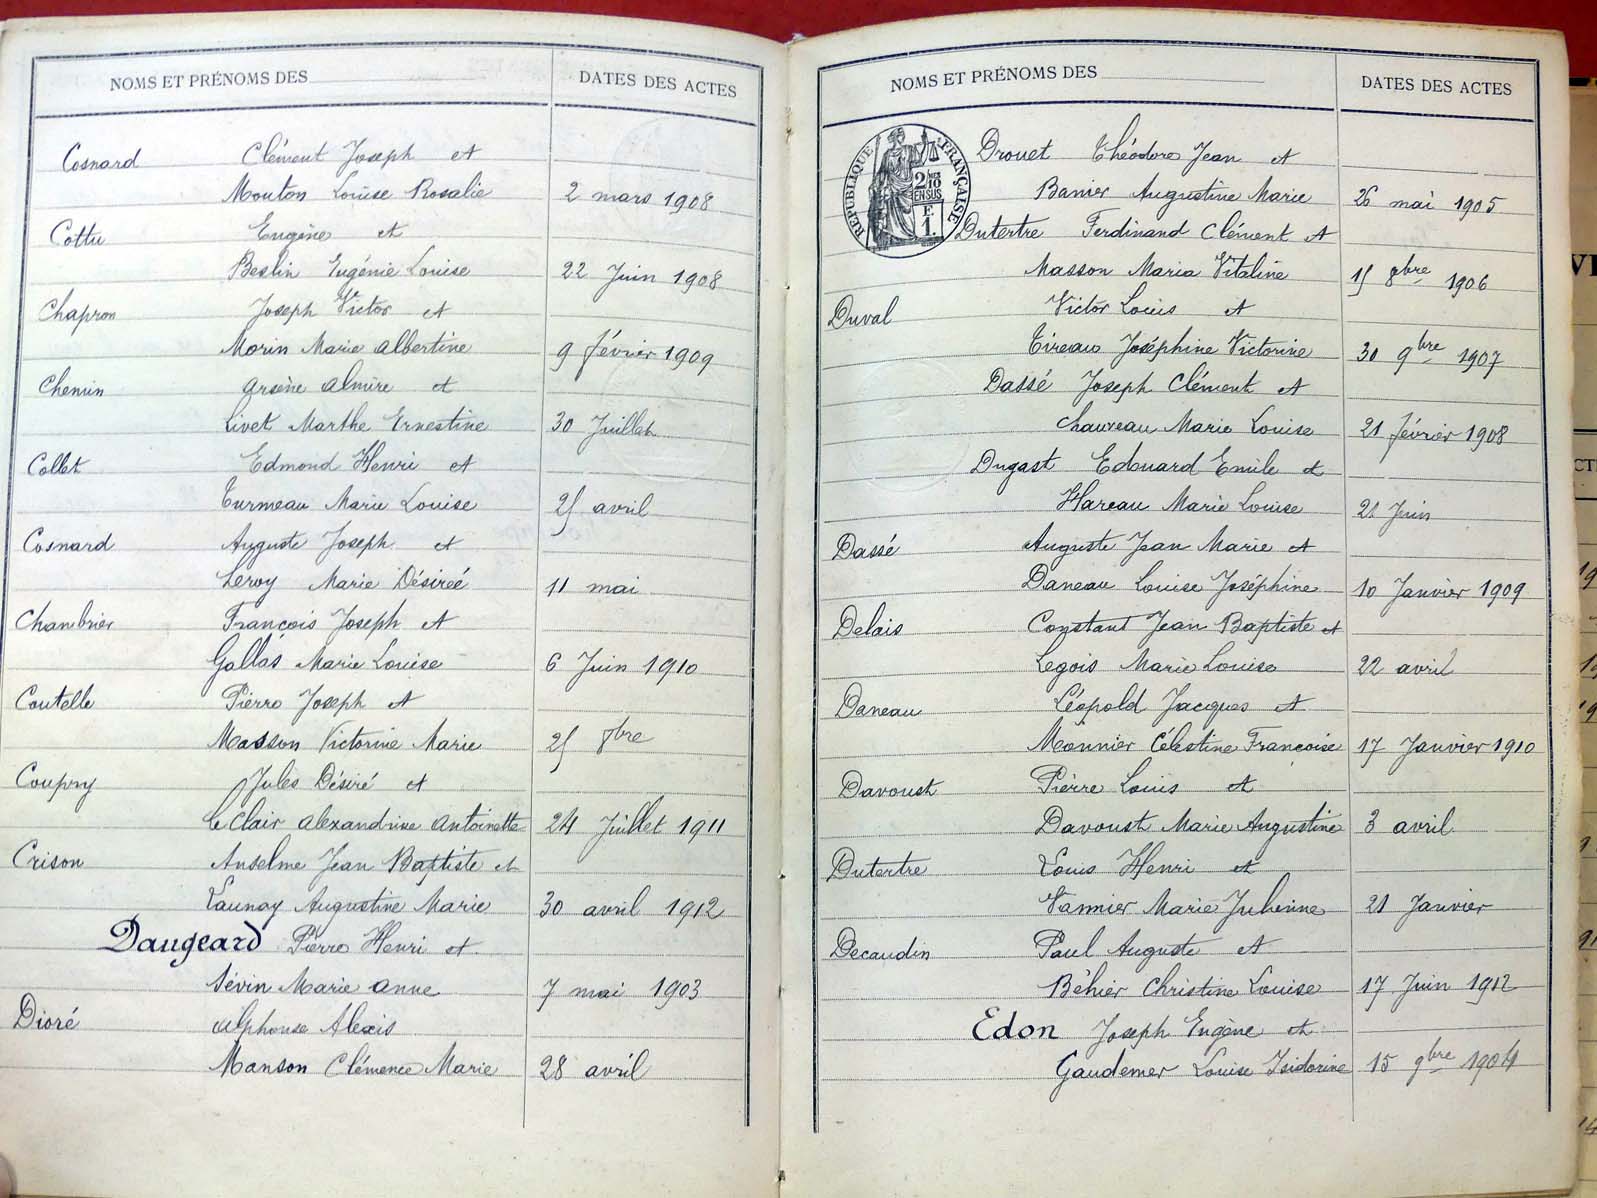 NOMS ET PRÉNOMS DES DATES DES ACTES
Cosnard Clément Joseph et
Mouton Louise Rosalie 2 mars 1908
Cottu Eugène et
Beslin Eugénie Louise 22 Juin 1908
Chapron Joseph Victor et
Morin Marie Albertine 9 février 1909
Chemin Arsène Almire et
Livet Marthe Ernestine 30 Juillet
Collet Edmond Henri et
Turmeau Marie Louise 25 avril
Cosnard Auguste Joseph et
Leroy Marie Désireé 11 mai
Chambrier François Joseph et
Gallas Marie Louise 6 Juin 1910
Coutelle Pierre Joseph et
Masson Victorine Marie 25 8bre
Coupry Jules Désiré et
Le Clair Alexandrine Antoinette 24 Juillet 1911
Crison Anselme Jean Baptiste et
Launay Augustine Marie 30 avril 1912
Daugeard Pierre Henri et
Sévin Marie Anne 7 mai 1903
Dioré Alphonse Alexis
Manson Clémence Marie 28 avril
NOMS ET PRÉNOMS DES DATES DES ACTES
RÉPUBLIQUE FRANÇAISE
2/10
EN SUS
F.
1.
Drouet Théodore Jean et
Banier Augustine Marie 26 mai 1905
Dutertre Ferdinand Clément et
Masson Maria Vitaline 15 8bre 1906
Duval Victor Louis et
Tireau Joséphine Victorine 30 9bre 1907
Dassé Joseph Clément et
Chauveau Marie Louise 21 février 1908
Dugast Edouard Emile et
Hareau Marie Louise 21 Juin
Dassé Auguste Jean Marie et
Daneau Louise Joséphine 10 Janvier 1909
Delais Constant Jean Baptiste et
Legois Marie Louise 22 avril
Daneau Léopold Jacques et
Monnier Célestine Françoise 17 Janvier 1910
Davoust Pierre Louis et
Davoust Marie Augustine 3 avril
Dutertre Louis Henri et
Vannier Marie Julienne 21 Janvier
Decaudin Paul Auguste et
Béhier Christine Louise 17 Juin 1912
Edon Joseph Eugène et
Gaudemer Louise Isidorine 15 9bre 1904